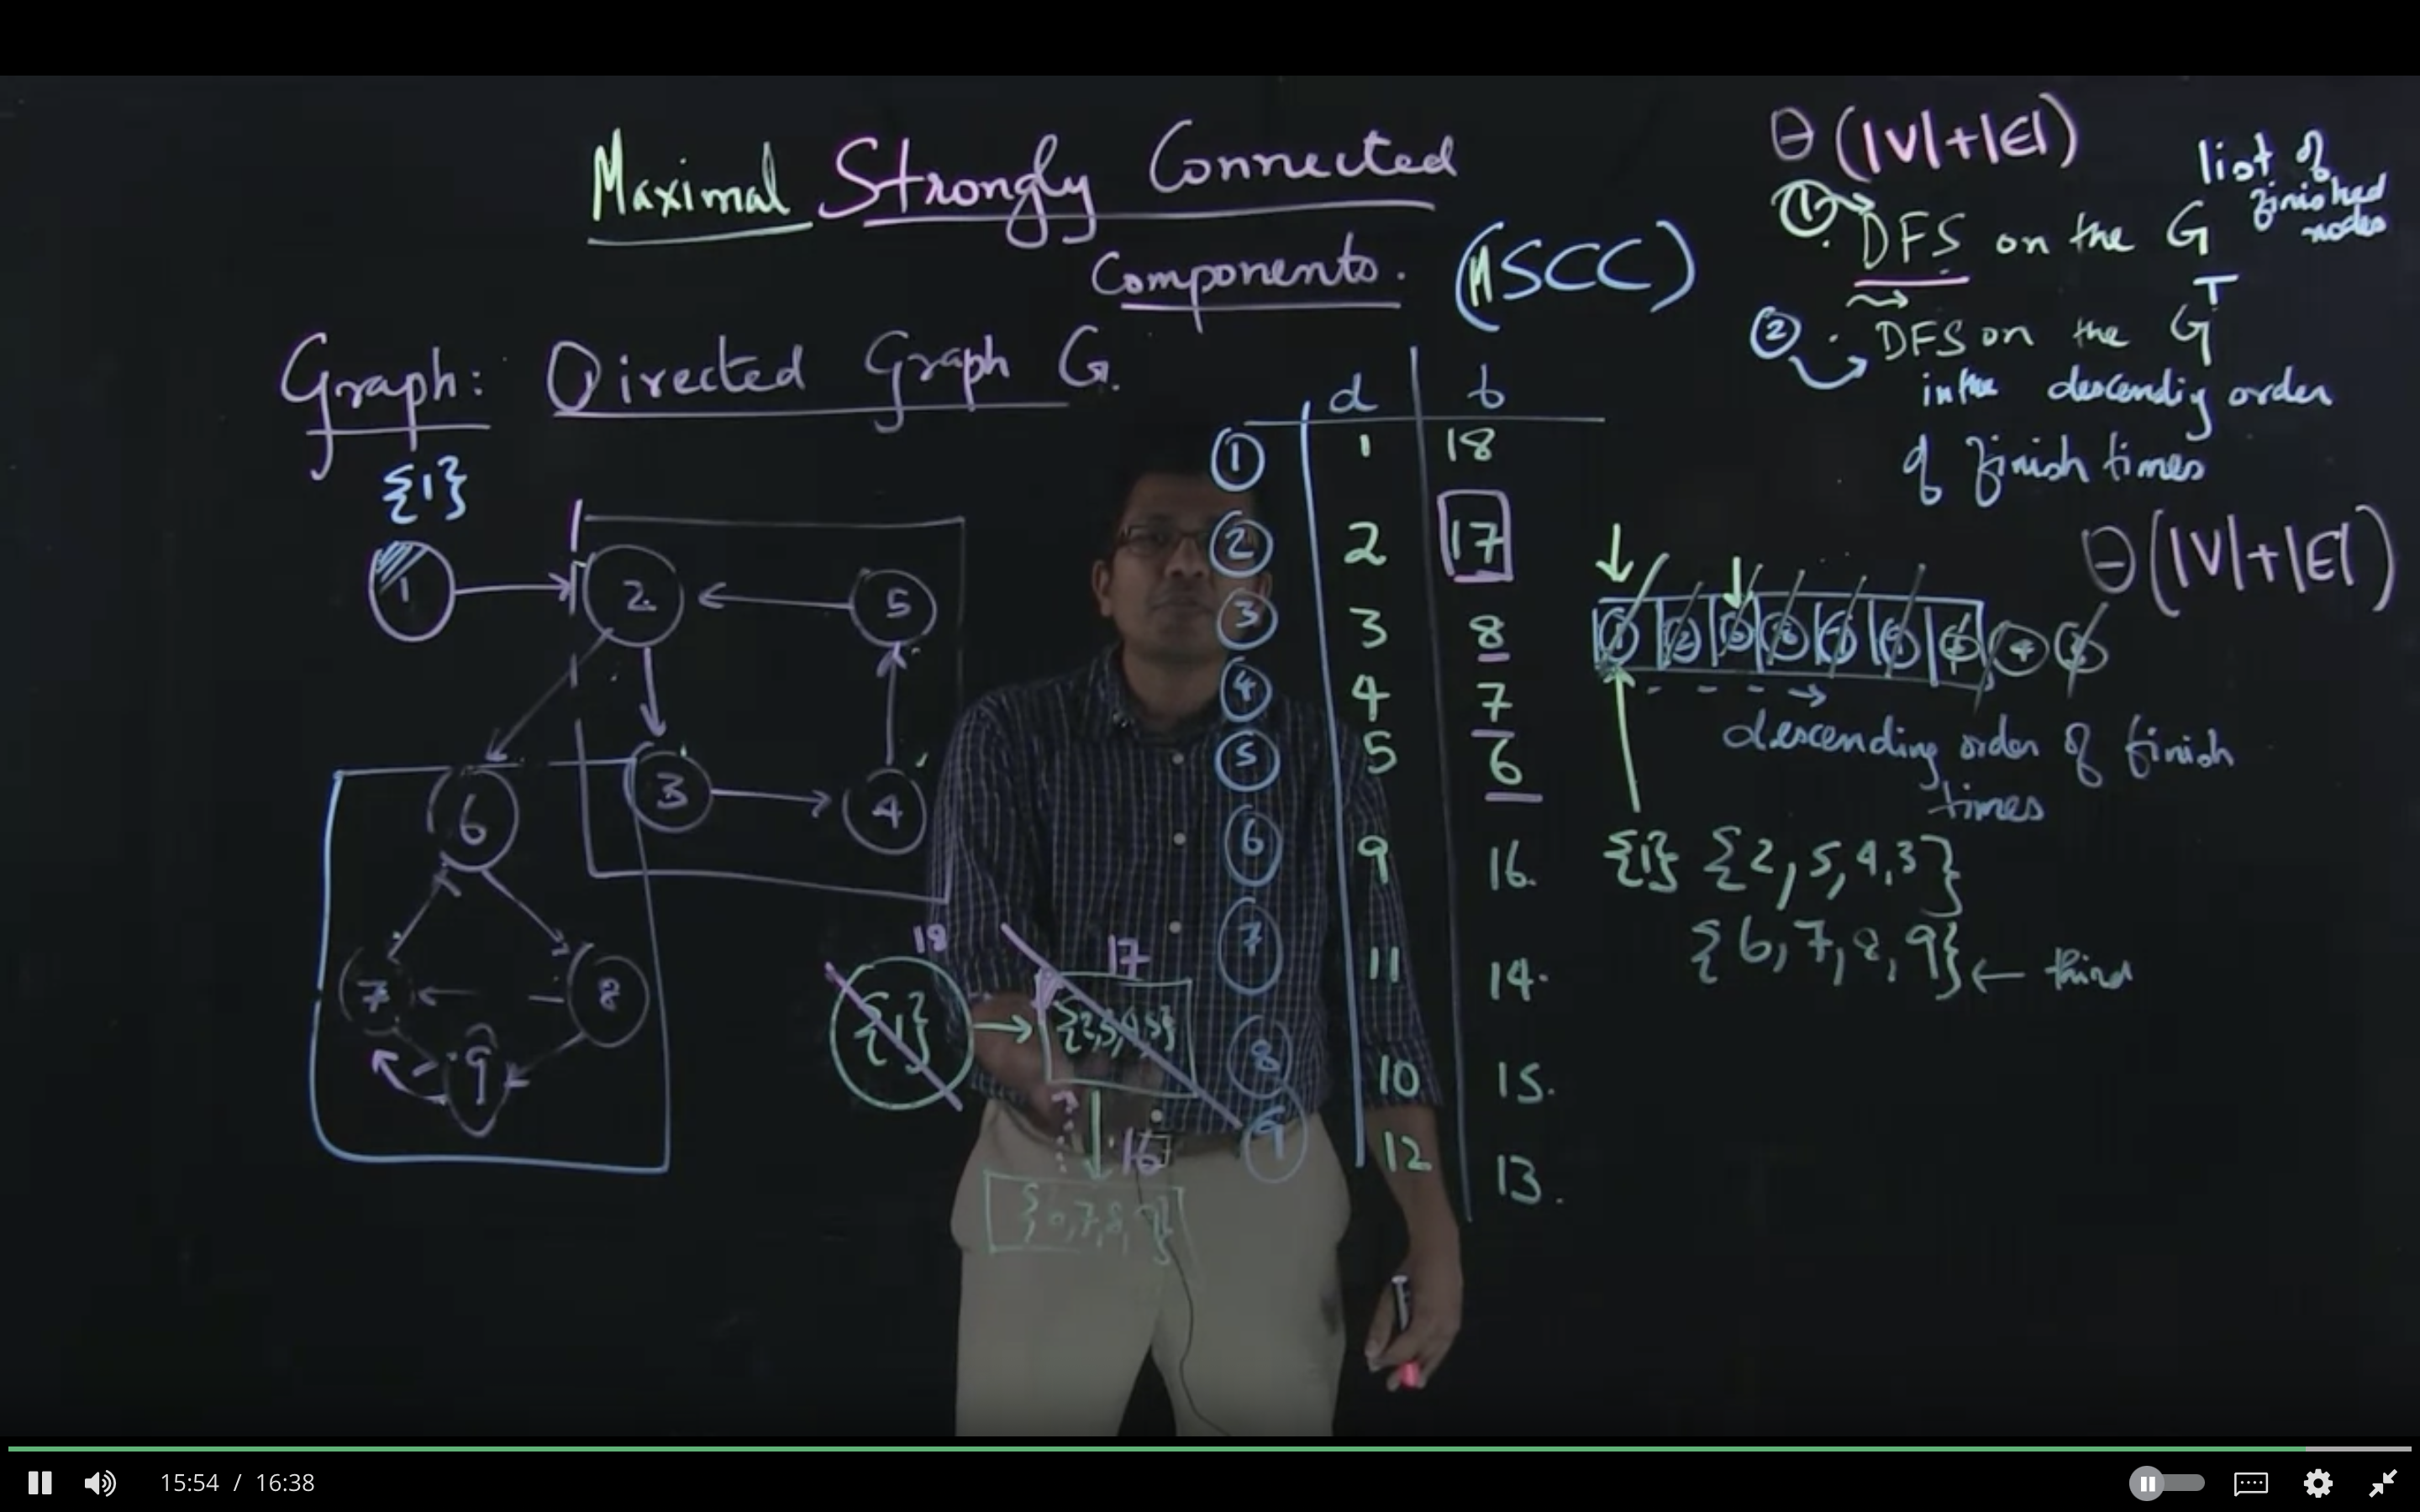 Maximal Strongly Connected
Components. (MSCC)
Graph: Directed Graph G.
{1}
1
2
5
3
4
6
7
8
9
18
17
{1}
{2,5,4,3}
16
{6,7,8,9}
d f
1 1 18
2 2 17
3 3 8
4 4 7
5 5 6
6 9 16.
7 11 14.
8 10 15.
9 12 13.
Θ(|V|+|E|)
list of
finished
nodes
1 DFS on the G
2 DFS on the G T
in the descendig order
of finish times
Θ(|V|+|E|)
1 2 6 8 7 9 3 4 5
descending order of finish
times
{1} {2,5,4,3}
{6,7,8,9} ← third
15:54 / 16:38